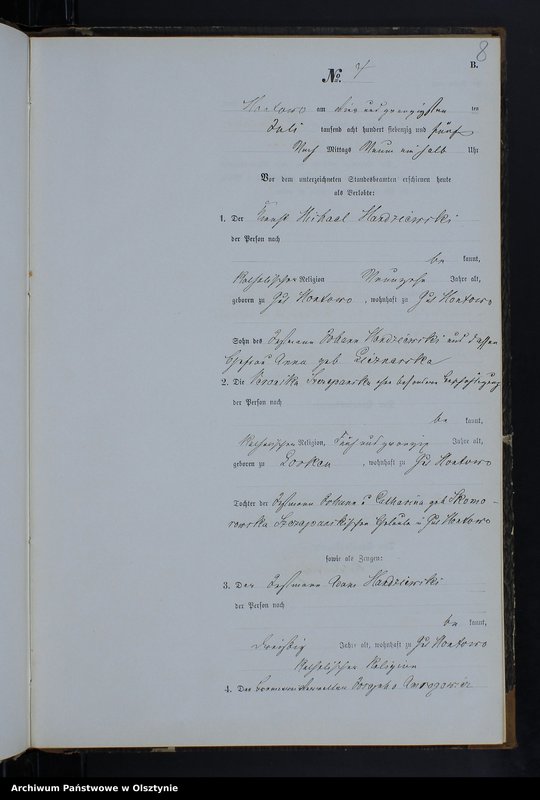 8
B.
No. 7
Hontowo am vier und zwanzigsten ten
Juli tausend acht hundert siebenzig und fünf
Nach Mittags Neun ein halb Uhr
Vor dem unterzeichneten Standesbeamten erschienen heute
als Verlobte:
1. Der Mihael Hardziewski
der Person nach
be kannt,
Katholischer Religion Neunzehn Jahre alt,
geboren zu Gut Hontowo, wohnhaft zu Gut Hontowo
Sohn des Johann Hardziewski und dessen
Ehefrau Anna geb.
2. Die Veronika Szczepanska ohne besondere Beschäftigung
der Person nach
be kannt,
Katholischer Religion, Fünf und zwanzig Jahre alt,
geboren zu Lorkau, wohnhaft zu Gut Hontowo
Tochter der Johann & Catharina geb Skomo-
rowska Szczepanskischen Eheleute in Gut Hontowo
sowie als Zeugen:
3. Der Hardziewski
der Person nach
be kannt,
Dreißig Jahre alt, wohnhaft zu Gut Hontowo
Katholischer Religion
4. Der
Archiwum Państwowe w Olsztynie